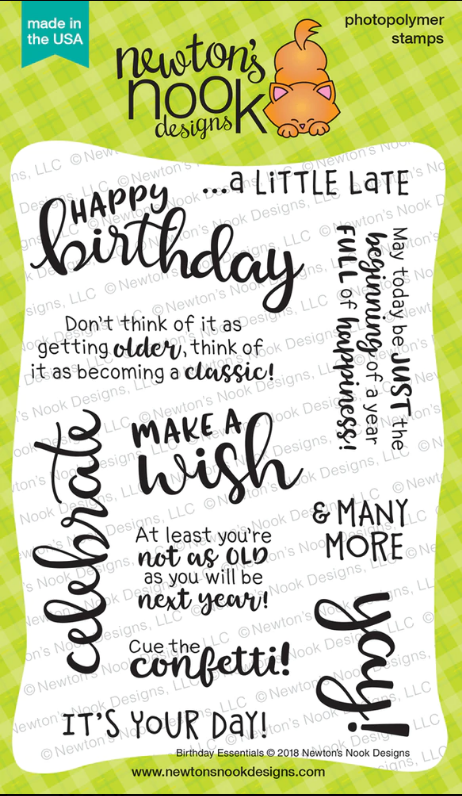 made in
the USA
photopolymer
stamps
newton's
nook
designs
...a LiTTLE LaTE
HAPPY
birthday
May today be JUST the
beginning of a year
FULL of happiness!
Don't think of it as
getting older, think of
it as becoming a classic!
celebrate
MAKE A
wish
& MANY
MORE
At least you're
not as OLD
as you will be
next year!
yay!
Cue the
confetti!
IT'S YOUR DAY!
Birthday Essentials © 2018 Newton's Nook Designs
www.newtonsnookdesigns.com
© Newton's Nook Designs, LLC